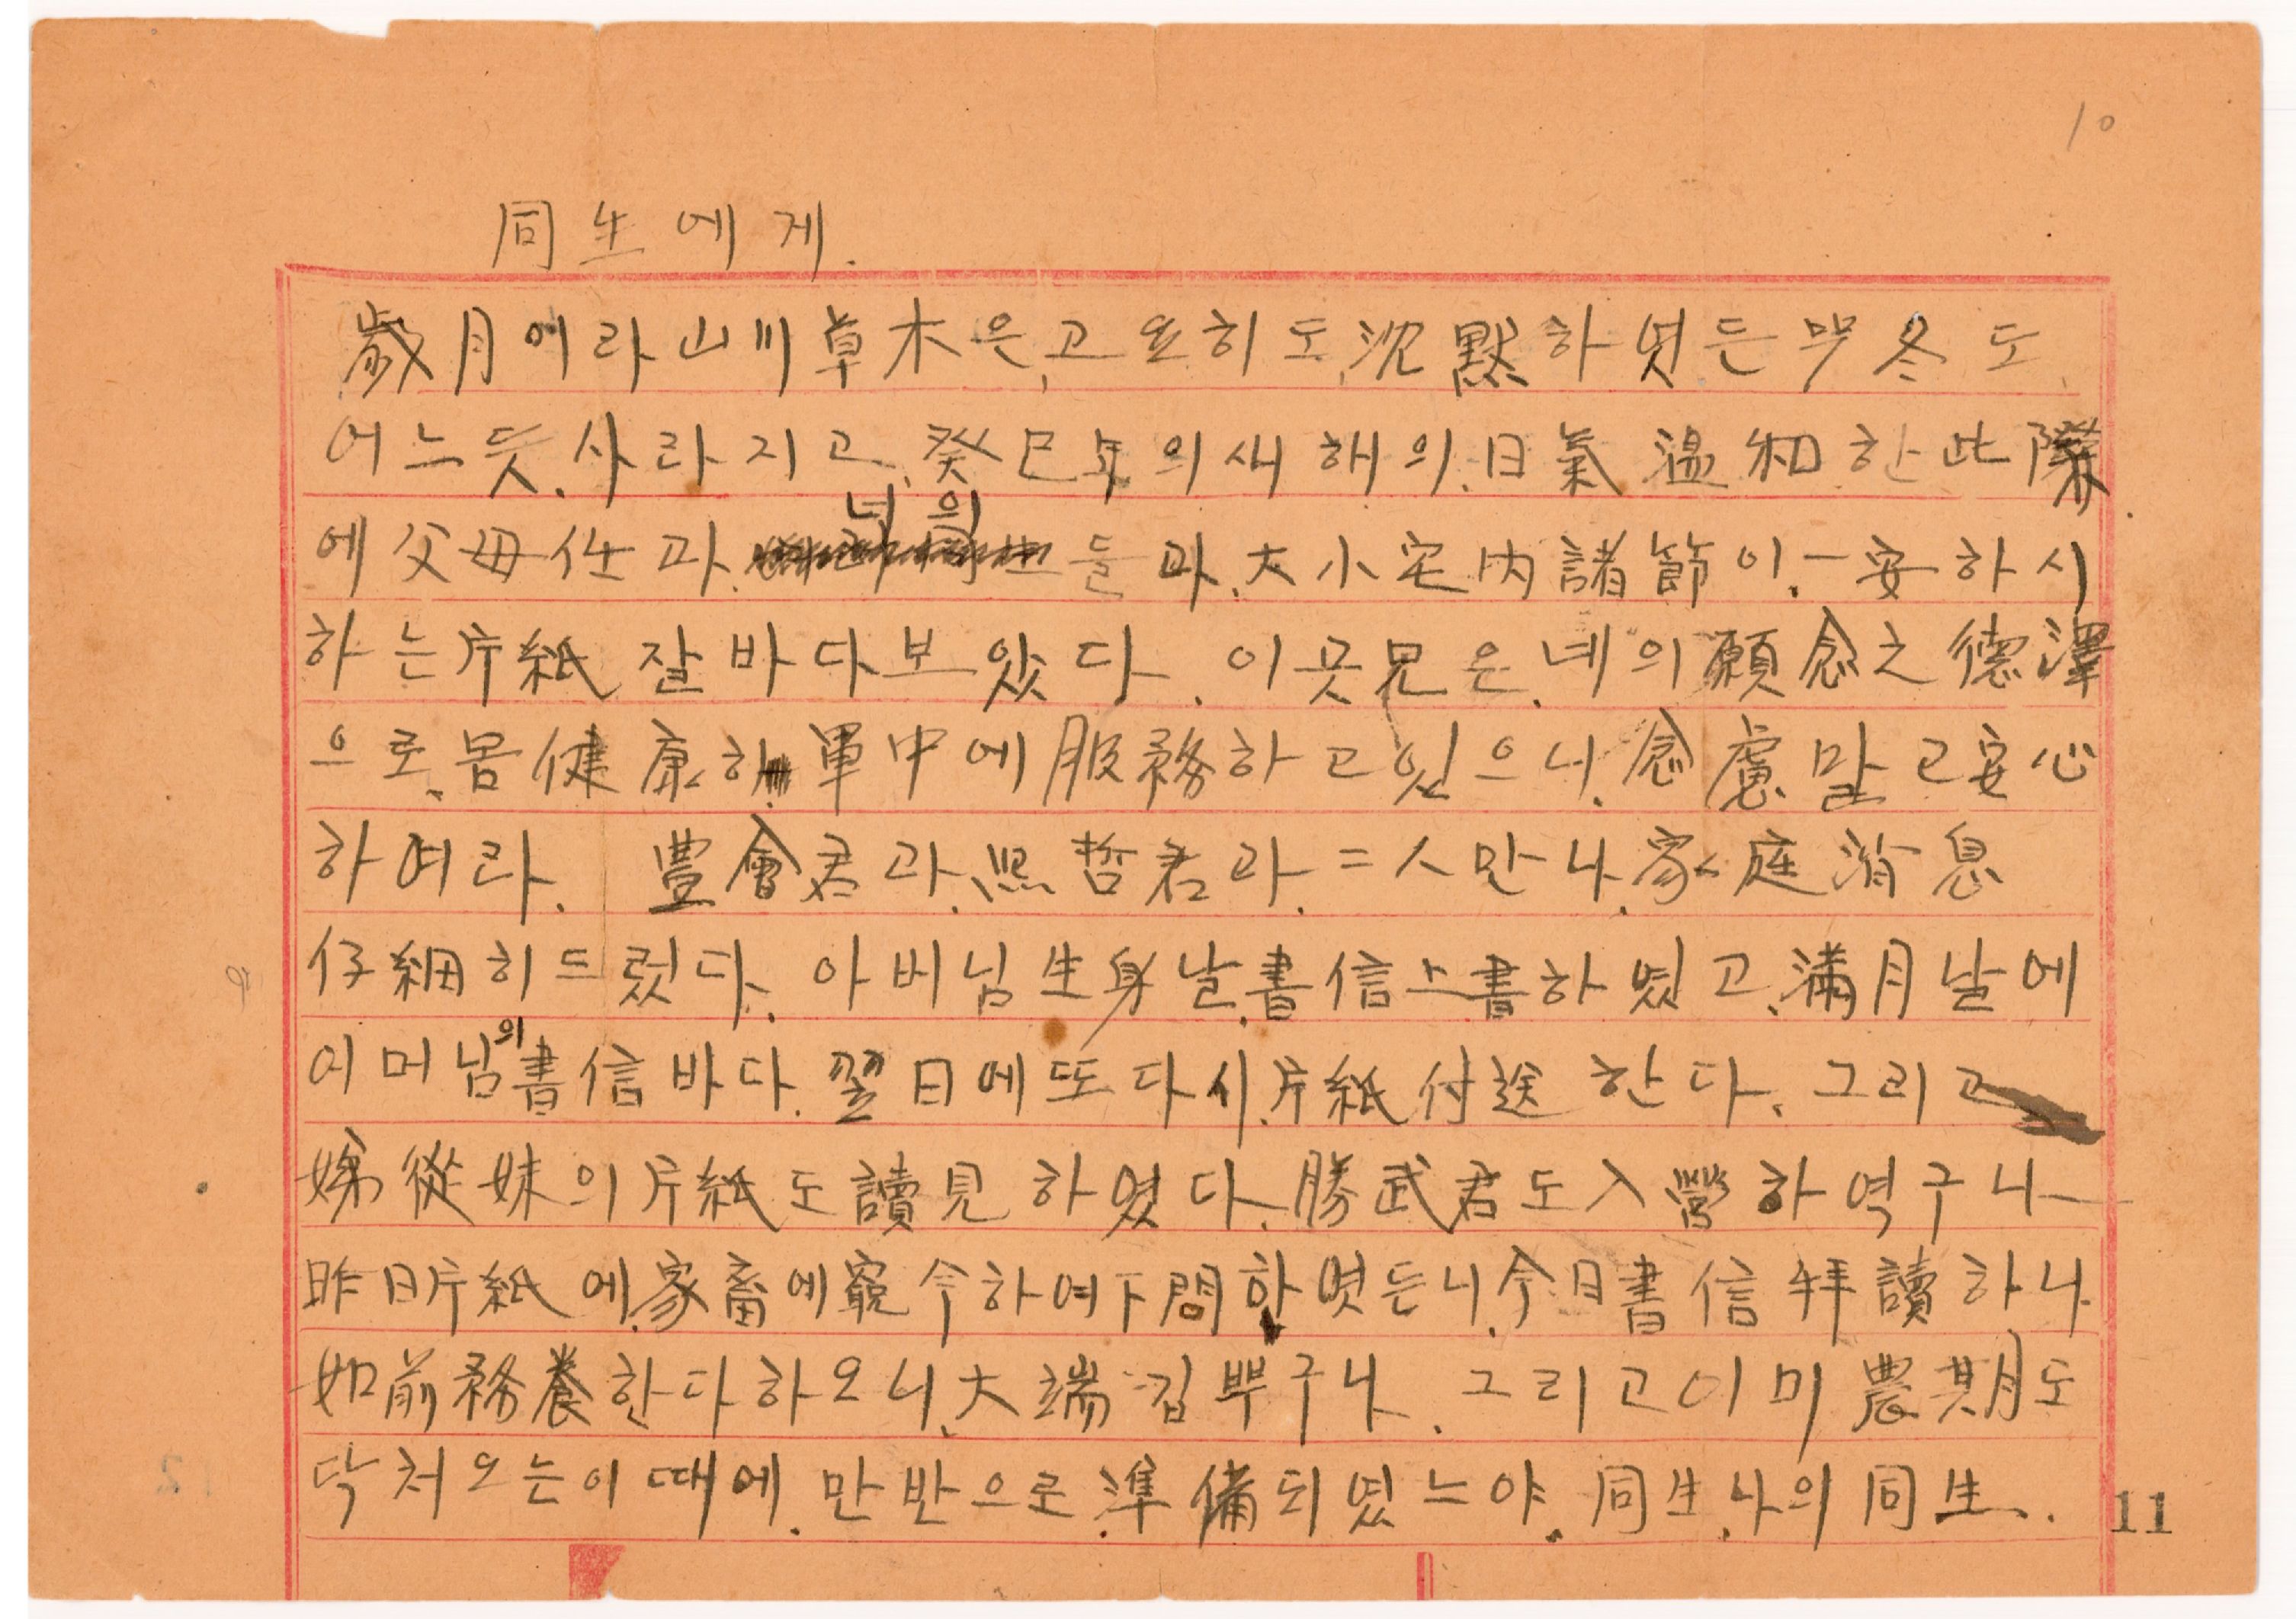 10
同生에게.
歲月이라山川草木은,고요히도,沈默하엿든몃冬도,
어느듯,사라지고,癸巳年의새해의,日氣溫和한此際,
에父母任과, 녀의 들과,大小宅內諸節이,一安하시
하는片紙 잘바다보왔다. 이곳兄은,녜의願念之德澤
으로,몸健康하 軍中에服務하고있으니,念慮말고安心
하여라. 豊會君과,熙哲君과,二人만나,家庭消息
仔細히드렀다. 아버님生身날,書信上書하였고,滿月날에
어머님의書信바다,翌日에또다시,片紙付送 한다. 그리고
娣從妹의片紙도讀見 하였다,勝武君도入營하역구나
昨日片紙에,家畜에 今하여下問하엿든니,今日書信拜讀하니
如前務養한다하오니,大端깁뿌구나. 그리고이미農期도
닥처오는이때에,만반으로,準備되였느야, 同生,나의同生.
11